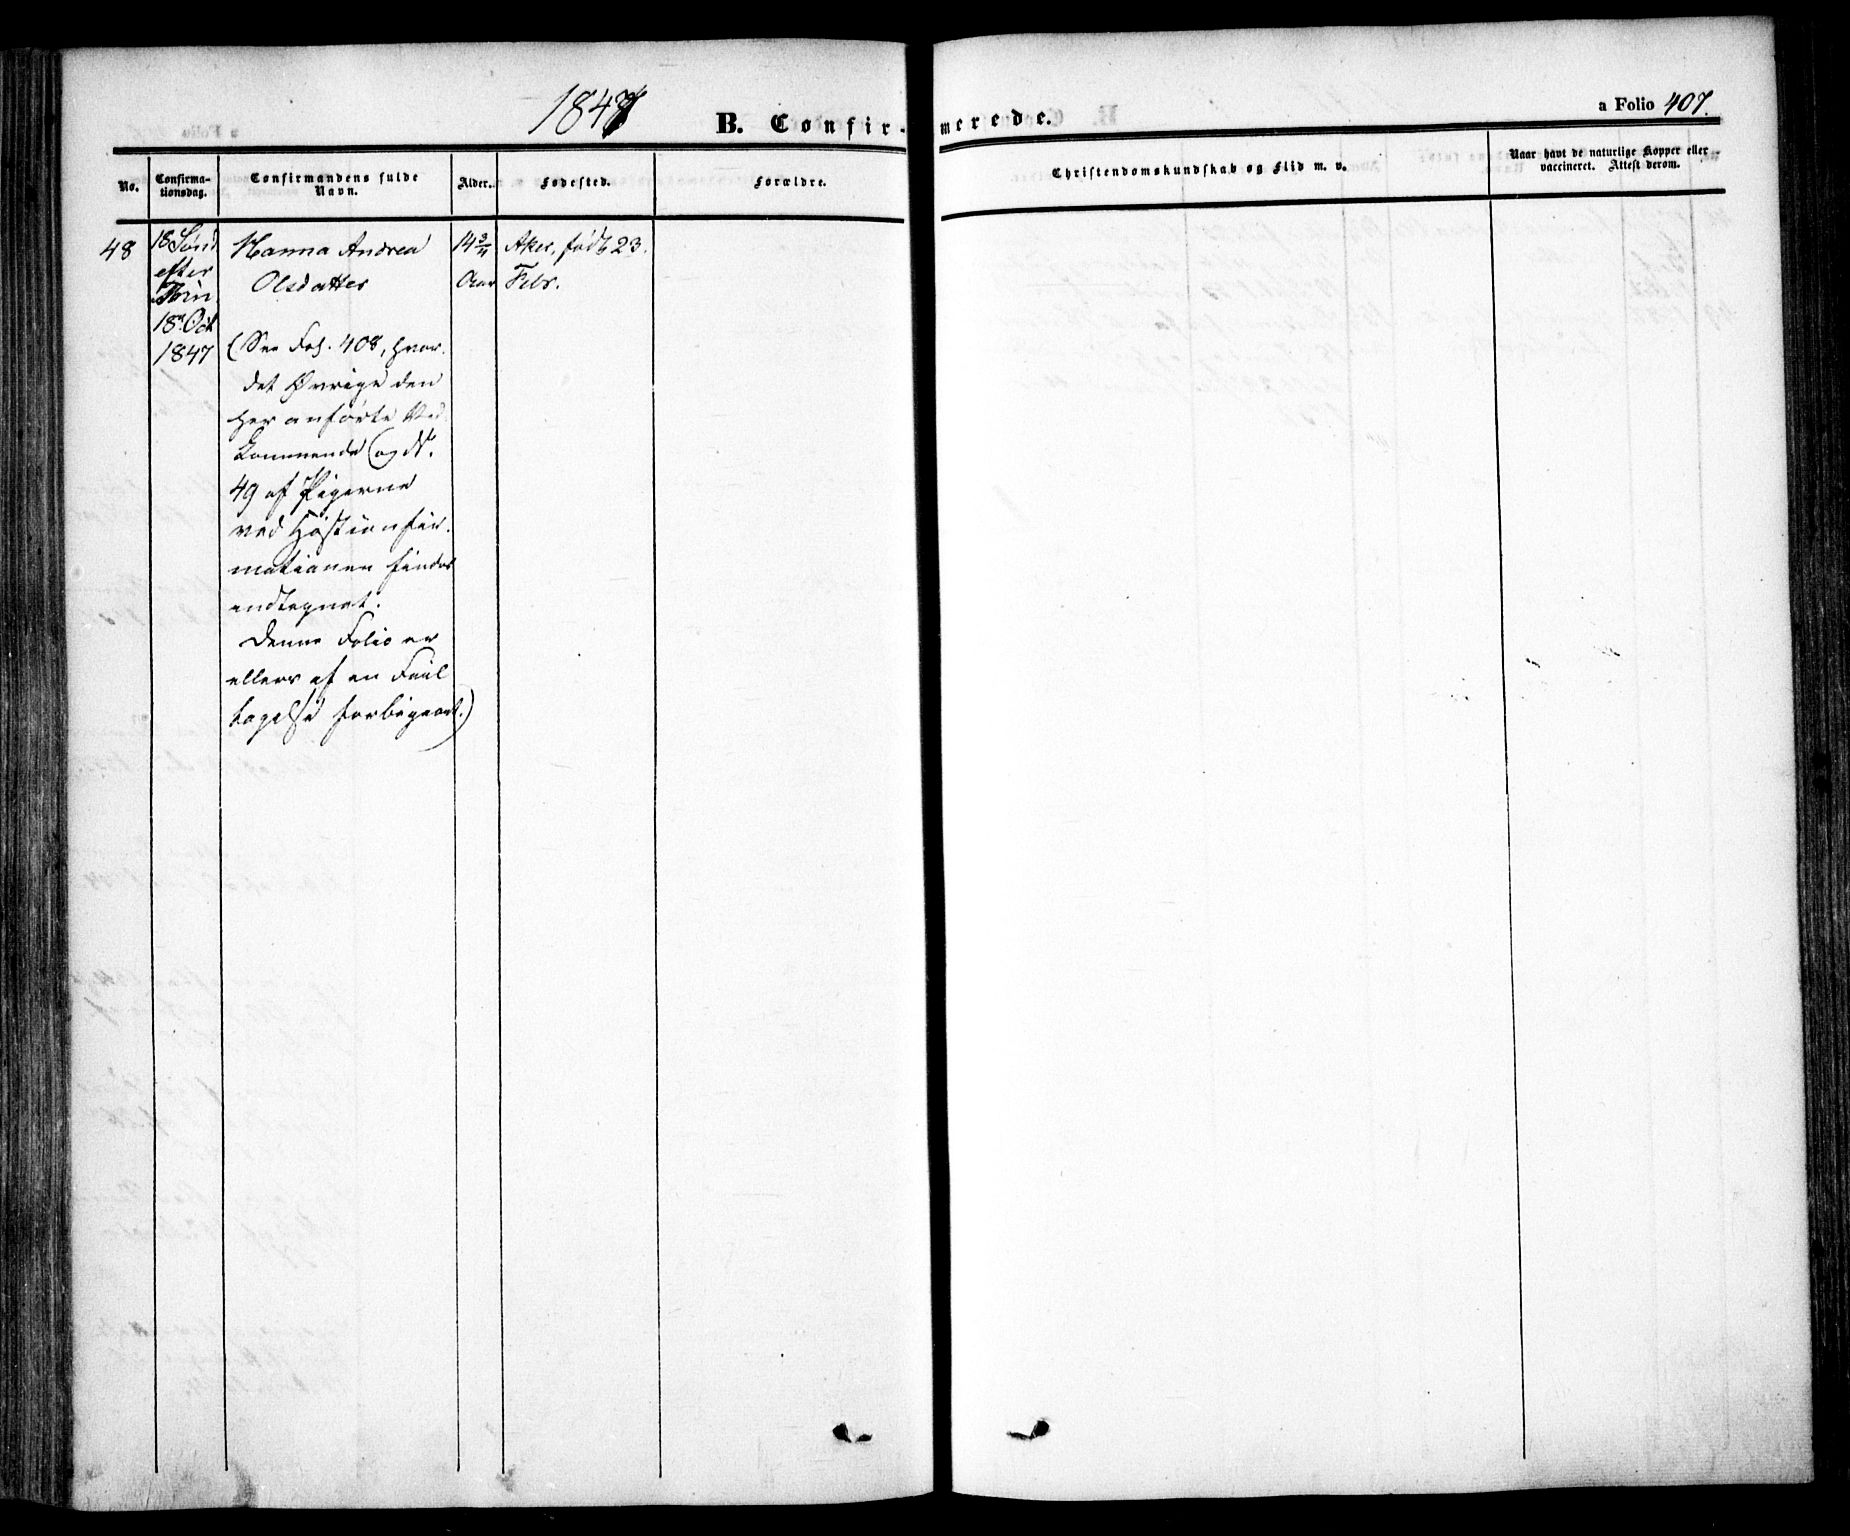 1847
B. Confirmerede.
a Folio 407.
No.
Confirma-
tionsdag.
Confirmandens fulde
Navn.
Alder.
Fødested.
Forældre.
Christendomskundskab og Flid m. v.
Naar havt de naturlige Kopper eller
vaccineret. Attest derom.
48
18 Sønd
efter
Trin
18 Oct
1847
Hanna Andrea
Olsdatter
(See Fol. 408, hvor
det Øvrige den
her anførte Ved
kommende (og
49 af Pigerne
ved Høstconfir-
mationen findes
indtegnet.
Denne Folio er
ellers af en Feil
tagelse forbigaaet.)
14 3/4
Aar
Aker, født 23
Febr.